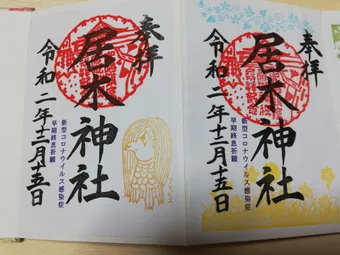 奉拝
居木神社
令和二年十二月十五日
新型コロナウイルス感染症
早期終息祈願
アマビエ
奉拝
居木神社
令和二年十二月十五日
新型コロナウイルス感染症
早期終息祈願